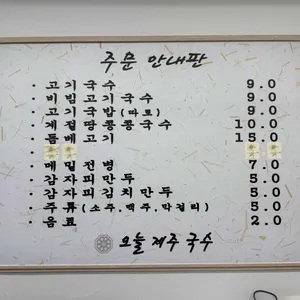 주문 안내판
· 고기국수 9.0
· 비빔고기국수 9.0
· 고기국밥(따로) 9.0
· 계절땅콩콩국수 10.0
· 돔베고기 15.0
· 메밀전병 7.0
· 감자피만두 5.0
· 감자피김치만두 5.0
· 주류(소주,맥주,막걸리) 5.0
· 음료 2.0
오늘 제주 국수